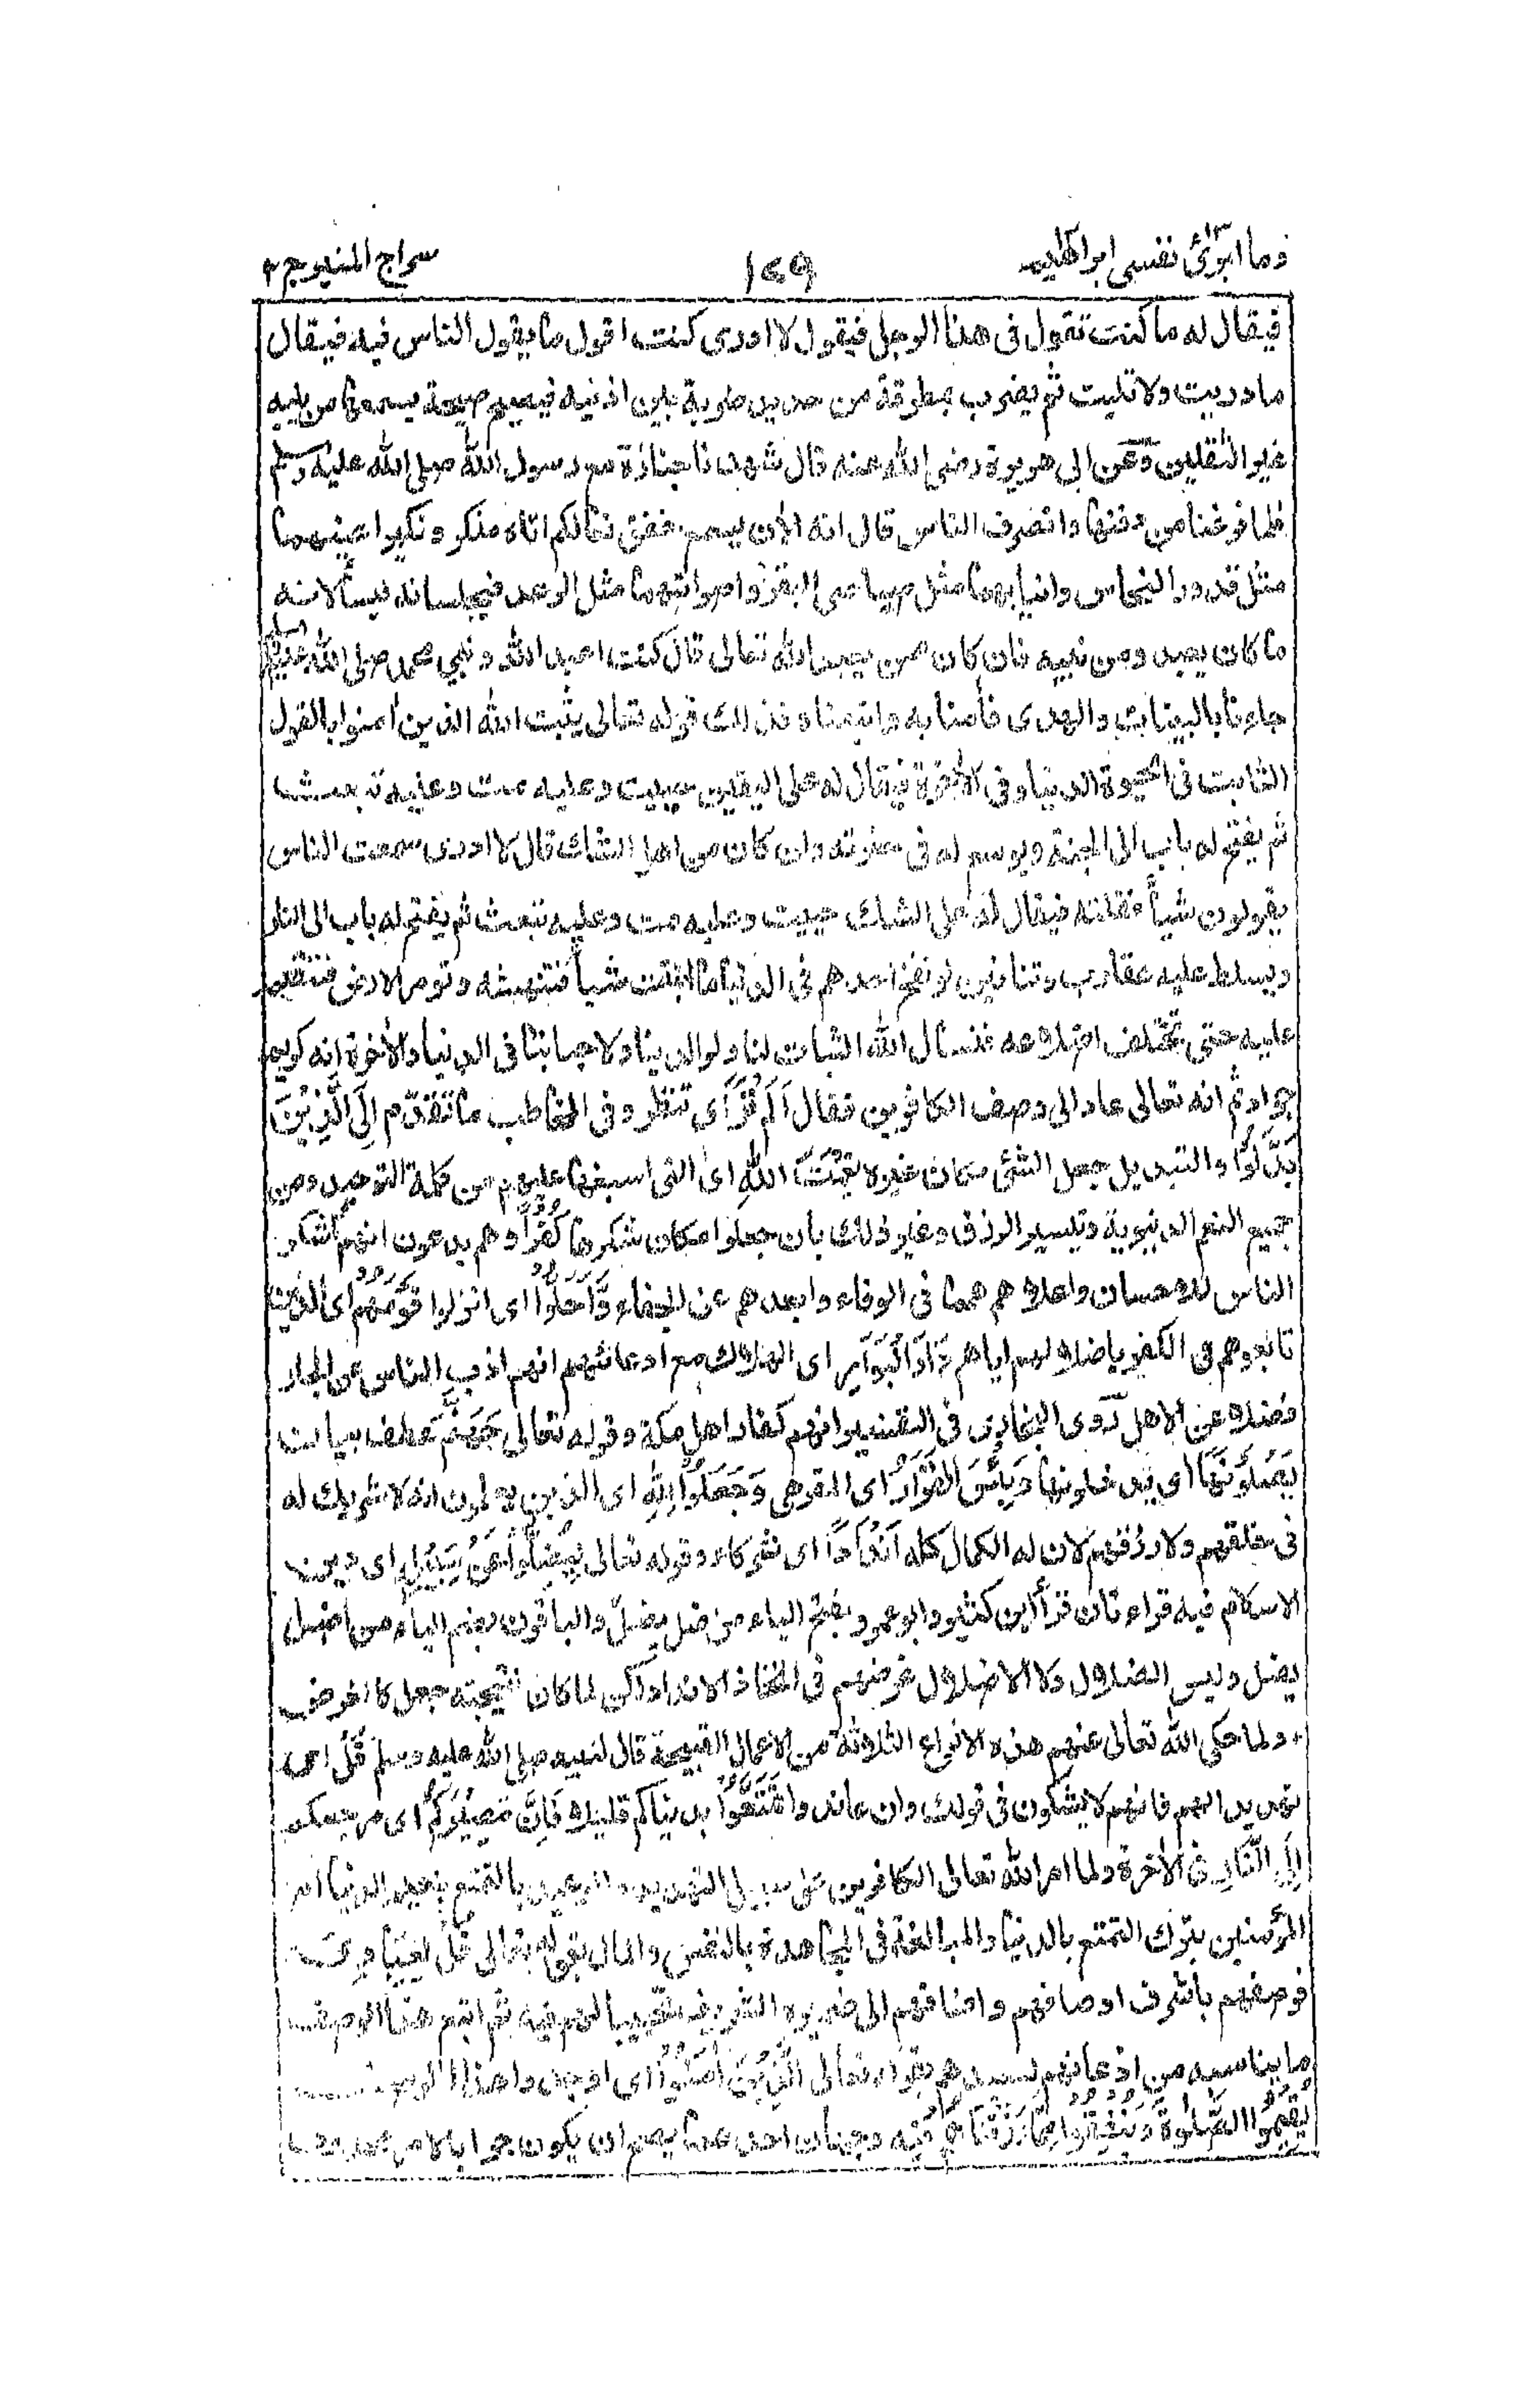 وما ابرئ نفسی ابراهیم
١٧٩
سراج المنیر ج ٢
فیقال له ما کنت تقول فی هذا الرجل فیقول لا ادری کنت اقول ما یقول الناس فیه فیقال
ما دریت ولا تلیت ثم یضرب بمطرقة من حدید ضربة بین اذنیه فیصیح صیحة یسمعها من یلیه
غیر الثقلین وعن ابی هریرة رضی الله عنه قال شهدنا جنازة مع رسول الله صلی الله علیه وسلم
فلما فرغنا من دفنها وانصرف الناس قال انه الان یسمع خفق نعالکم اتاه منکر ونکیر اعینهما
مثل قدور النحاس وانیابهما مثل صیاصی البقر واصواتهما مثل الرعد فیجلسانه فیسألانه
ما کان یعبد ومن نبیه فان کان ممن یعبد الله تعالی قال کنت اعبد الله ونبیی محمد صلی الله علیه وسلم
جاءنا بالبینات والهدی فأمنا به واتبعناه فذلک قوله تعالی یثبت الله الذین أمنوا بالقول
الثابت فی الحیوة الدنیا وفی الأخرة فیقال له علی الیقین حییت وعلیه مت وعلیه تبعث
ثم یفتح له باب الی الجنة ویوسع له فی حفرته وان کان من اهل الشک قال لا ادری سمعت الناس
یقولون شیأ فقلته فیقال له علی الشک حییت وعلیه مت وعلیه تبعث ثم یفتح له باب الی النار
ویسلط علیه عقارب وتنانین لو نفخ احدهم فی الدنیا ما انبتت شیأ فتنهشه وتومر الارض فتنضم
علیه حتی تختلف اضلاعه فنسأل الله الثبات لنا ولوالدینا ولاحبابنا فی الدنیا والأخرة انه کریم
جواد ثم انه تعالی عاد الی وصف الکافرین فقال اَلَمْ تَرَ ای تنظر وفی المخاطب ما تقدم اِلَی الَّذِیْنَ
بَدَّلُوْا والتبدیل جعل الشئ مکان غیره نِعْمَتَ اللهِ ای التی اسبغها علیهم من کلمة التوحید ومن
جمیع النعم الدنیویة وتیسیر الرزق وغیر ذلک بأن جعلوا مکان شکرها کُفْرًا وهم یدعون انهم اشکر
الناس للاحسان واعلاهم همما فی الوفاء وابعدهم عن الجفاء وَّاَحَلُّوْا ای انزلوا قَوْمَهُمْ ای الذین
تابعوهم فی الکفر باضلالهم ایاهم دَارَ الْبَوَارِ ای الهلاک مع ادعائهم انهم اذب الناس عن الجار
فضلا عن الاهل روی البخاری فی التفسیر انهم کفار اهل مکة وقوله تعالی جَهَنَّمَ عطف بیان
یَصْلَوْنَهَا ای یدخلونها وَبِئْسَ الْقَرَارُ ای المقر هی وَجَعَلُوْا لِلّٰهِ ای الذین یعلمون انه لا شریک له
فی خلقهم ولا رزقهم لان له الکمال کله اَنْدَادًا ای شرکاء وقوله تعالی لِیُضِلُّوْا عَنْ سَبِیْلِهِ ای دین
الاسلام فیه قراءتان قرأ ابن کثیر وابو عمرو بفتح الیاء من ضل یضل والباقون بضم الیاء من اضل
یضل ولیس الضلال ولا الاضلال غرضهم فی اتخاذ الانداد لکن لما کان نتیجته جعل کالغرض
ولما حکی الله تعالی عنهم هذه الانواع الثلاثة من الاعمال القبیحة قال لنبیه صلی الله علیه وسلم قُلْ ای
تهدیدا لهم فانهم لا یشکون فی قولک وان عاندوا تَمَتَّعُوْا بدنیاکم قلیلا فَاِنَّ مَصِیْرَکُمْ ای مرجعکم
اِلَی النَّارِ فی الأخرة ولما امر الله تعالی الکافرین علی سبیل التهدید والوعید بالتمتع بنعیم الدنیا امر
المؤمنین بترک التمتع بالدنیا والمبالغة فی المجاهدة بالنفس والمال بقوله تعالی قُلْ لِعِبَادِیَ
فوصفهم باشرف اوصافهم واضافهم الی ضمیره الشریف تحبیبا لهم فیه ثم اتبع هذا الوصف
ما یناسبه من اذعانهم لسیدهم بقوله تعالی الَّذِیْنَ اٰمَنُوْا ای اوجدوا هذا الوصف
یُقِیْمُوا الصَّلٰوةَ وَیُنْفِقُوْا مِمَّا رَزَقْنٰهُمْ فیه وجهان احدهما یصح ان یکون جوابا لامر محذوف